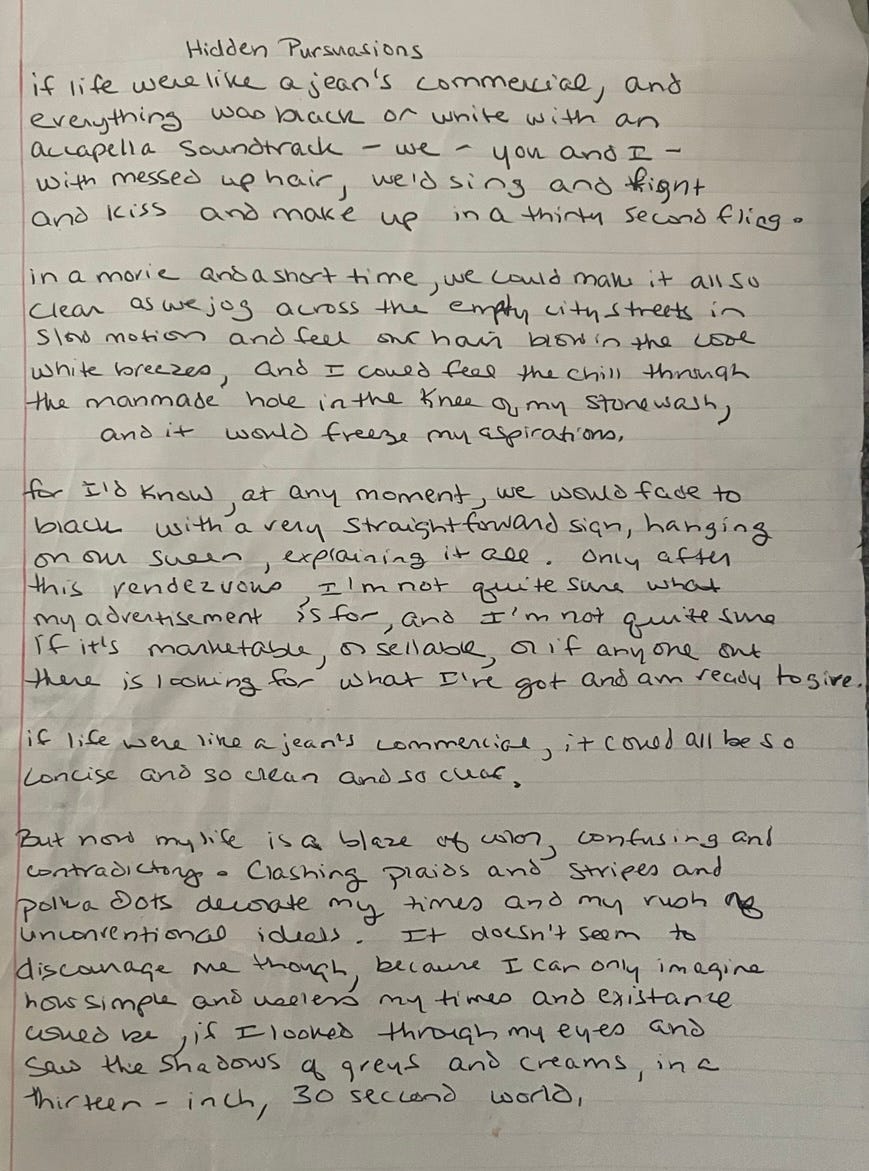 Hidden Pursuasions
if life were like a jean's commercial, and
everything was black or white with an
accapella soundtrack - we - you and I -
with messed up hair, we'd sing and fight
and kiss and make up in a thirty second fling.
in a movie and a short time, we could make it all so
clear as we jog across the empty city streets in
slow motion and feel our hair blow in the cool
white breezes, and I could feel the chill through
the manmade hole in the knee of my stonewash,
and it would freeze my aspirations.
for I'd know, at any moment, we would fade to
black with a very straightforward sign, hanging
on our screen, explaining it all. Only after
this rendezvous, I'm not quite sure what
my advertisement is for, and I'm not quite sure
if it's marketable, or sellable, or if anyone out
there is looking for what I've got and am ready to give.
if life were like a jean's commercial, it could all be so
concise and so clean and so clear.
But now my life is a blaze of color, confusing and
contradictory. Clashing plaids and stripes and
polka dots decorate my times and my rush of
unconventional ideals. It doesn't seem to
discourage me though, because I can only imagine
how simple and useless my times and existance
could be, if I looked through my eyes and
saw the shadows of greys and creams, in a
thirteen-inch, 30 seccond world.